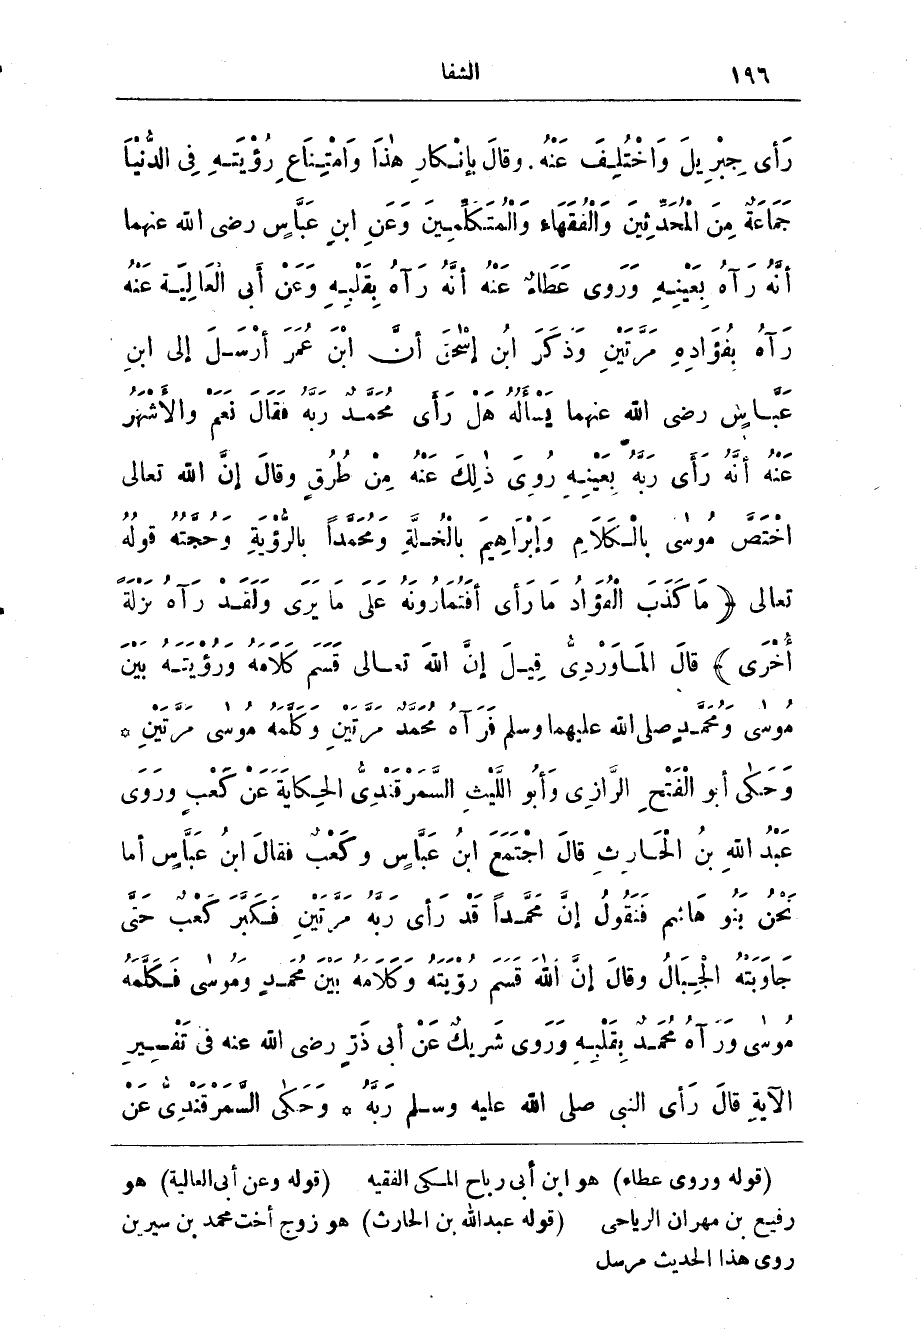 ١٩٦ الشفا
رَأى جِبْرِيلَ وَاخْتُلِفَ عَنْهُ. وقالَ بِإنْكارِ هٰذَا وَامْتِنَاعِ رُؤْيَتِهِ فِى الدُّنْيَا
جَمَاعَةٌ مِنَ الْمُحَدِّثِينَ وَالْفُقَهَاءِ وَالْمُتَكَلِّمِينَ وَعَنِ ابنِ عَبَّاسٍ رضى الله عنهما
أنَّهُ رَآهُ بِعَيْنِهِ وَرَوى عَطَاءٌ عَنْهُ أنَّهُ رَآهُ بِقَلْبِهِ وَعَنْ أَبى الْعَالِيَةِ عَنْهُ
رَآهُ بِفُؤَادِهِ مَرَّتَيْنِ وَذَكَرَ ابنُ إسْحٰقَ أنَّ ابْنَ عُمَرَ أرْسَلَ إلى ابنِ
عَبَّاسٍ رضى الله عنهما يَسْأَلُهُ هَلْ رَأى مُحَمَّدٌ رَبَّهُ فَقَالَ نَعَمْ والأَشْهَرُ
عَنْهُ أنَّهُ رَأى رَبَّهُ بِعَيْنِهِ رُوِىَ ذٰلِكَ عَنْهُ مِنْ طُرُقٍ وقالَ إنَّ الله تعالى
اخْتَصَّ مُوسٰى بِالْكَلَامِ وَإبْرَاهِيمَ بِالْخُلَّةِ وَمُحَمَّداً بِالرُّؤْيَةِ وَحُجَّتُهُ قولُهُ
تعالى ﴿ مَا كَذَبَ الْفُؤَادُ مَا رَأى أفَتُمَارُونَهُ عَلَى مَا يَرَى وَلَقَدْ رَآهُ نَزْلَةً
أُخْرَى ﴾ قالَ الْمَاوَرْدِىُّ قِيلَ إنَّ اللهَ تعالى قَسَمَ كَلَامَهُ وَرُؤْيَتَهُ بَيْنَ
مُوسٰى وَمُحَمَّدٍ صلى الله عليهما وسلم فَرَآهُ مُحَمَّدٌ مَرَّتَيْنِ وَكَلَّمَهُ مُوسٰى مَرَّتَيْنِ *
وَحَكَى أبو الْفَتْحِ الرَّازِى وَأَبُو اللَّيْثِ السَّمَرْقَنْدِىُّ الحِكايَةَ عَنْ كَعْبٍ وَرَوَى
عَبْدُ اللهِ بنُ الْحَارِثِ قالَ اجْتَمَعَ ابنُ عَبَّاسٍ وكَعْبٌ فقالَ ابنُ عَبَّاسٍ أما
نَحْنُ بَنُو هَاشِمٍ فَنَقُولُ إنَّ مُحَمَّداً قَدْ رَأى رَبَّهُ مَرَّتَيْنِ فَكَبَّرَ كَعْبٌ حَتَّى
جَاوَبَتْهُ الْجِبَالُ وقالَ إنَّ اللهَ قَسَمَ رُؤْيَتَهُ وَكَلَامَهُ بَيْنَ مُحَمَّدٍ وَمُوسٰى فَكَلَّمَهُ
مُوسٰى وَرَآهُ مُحَمَّدٌ بِقَلْبِهِ وَرَوى شَرِيكٌ عَنْ أبى ذَرٍّ رضى الله عنه فى تَفْسِيرِ
الآيَةِ قالَ رَأى النبى صلى الله عليه وسلم رَبَّهُ * وَحَكَى السَّمَرْقَنْدِىُّ عَنْ
(قوله وروى عطاء) هو ابن أبى رباح المكى الفقيه (قوله وعن أبى العالية) هو
رفيع بن مهران الرياحى (قوله عبدالله بن الحارث) هو زوج أخت محمد بن سيرين
روى هذا الحديث مرسل